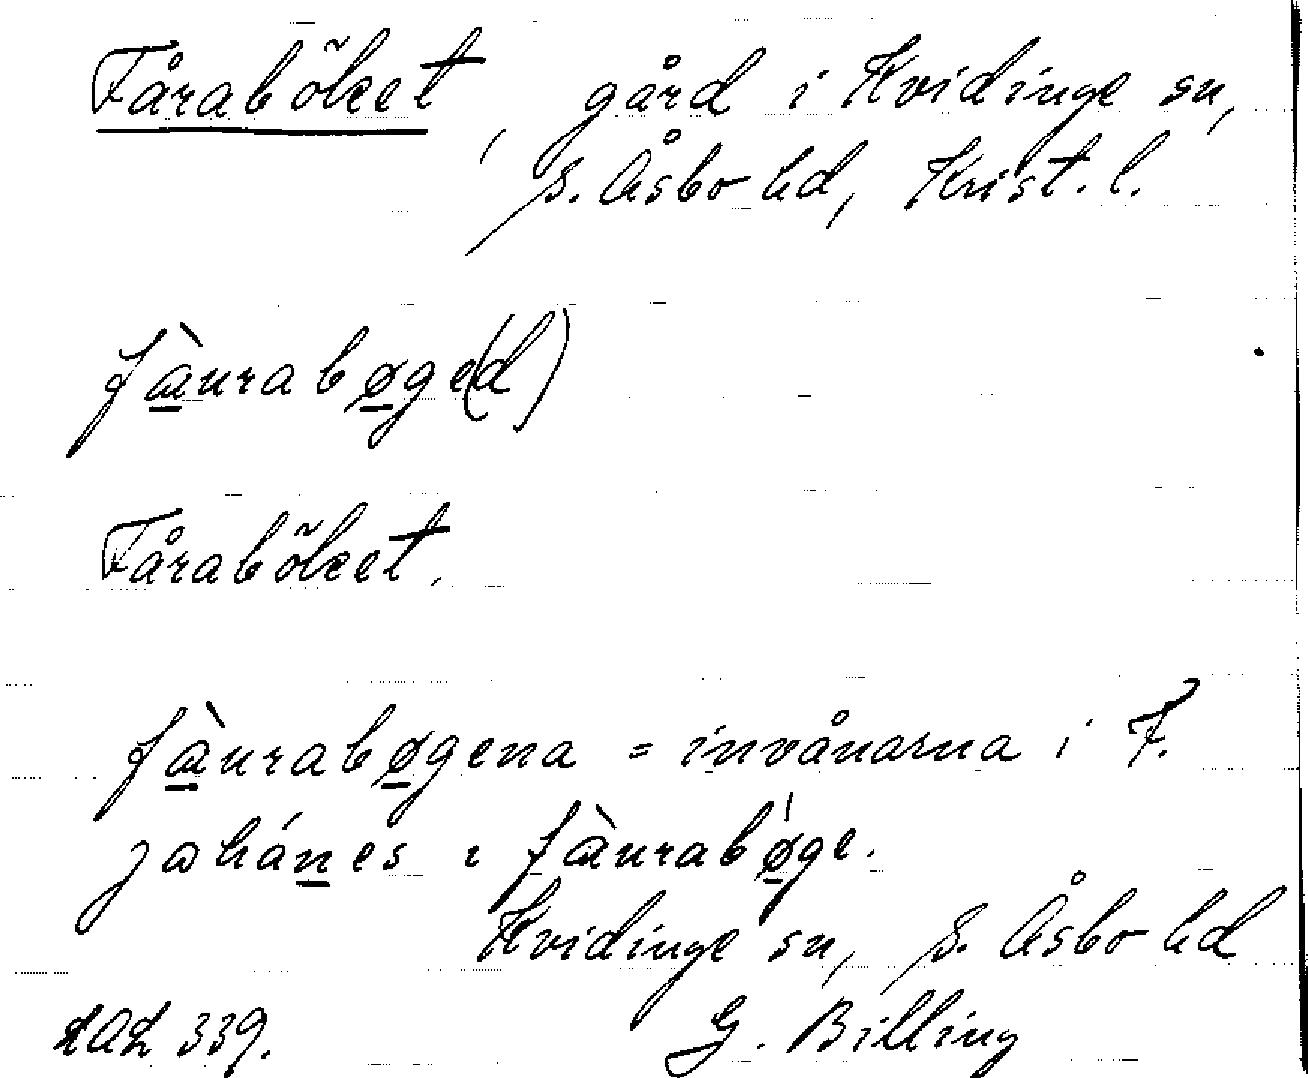 Fåraböket, gård i Kvidinge sn,
S. Åsbo hd, Krist. l.
fàurabøge(d)
Fåraböket.
fàurabøgena = invånarna i F.
johánes i fàurabøge.
Kvidinge sn, S. Åsbo hd
LAL 339. G. Billing